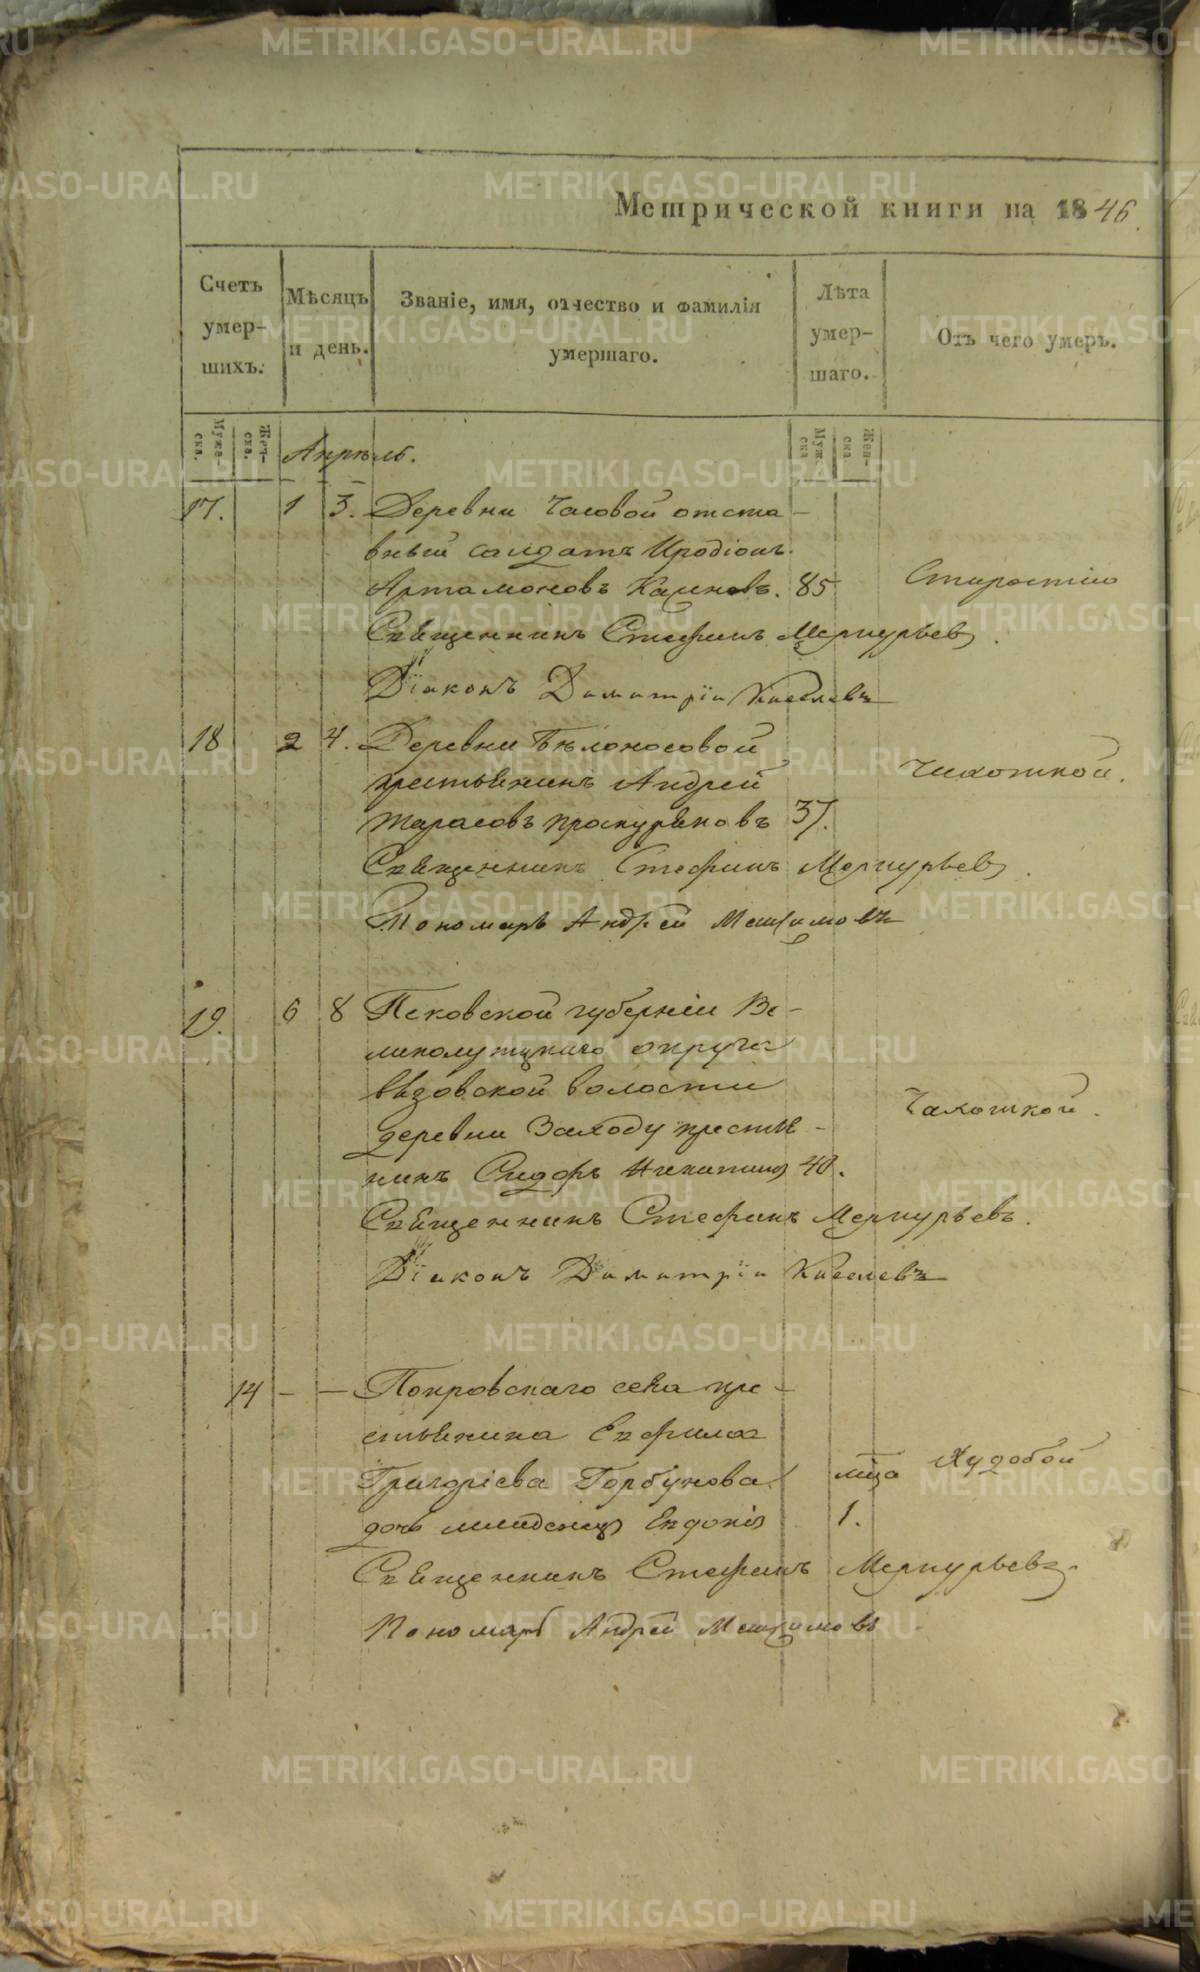 Метрической книги на 1846.
Счетъ умершихъ.
Мѣсяцъ и день.
Званіе, имя, отчество и фамилія умершаго.
Лѣта умершаго.
Отъ чего умеръ.
Мужеска.
Женска.
Апрѣль.
Мужеска
Женска
17. 1 3. Деревни Часовой отста-
вный салдатъ Иродіонъ
Артамоновъ 85 Старостію
Священникъ Стефанъ Меркурьевъ.
Діаконъ Димитрій Киселевъ
18 2 4. Деревни Бѣлоносовой
крестьянинъ Андрей Чахоткой.
Тарасовъ Проскуряковъ 37.
Священникъ Стефанъ Меркурьевъ.
Пономарь Андрей
19. 6 8 Псковской губерніи Ве-
ликолуцкаго округа
вязовской волости
деревни Заходу крестья- Чахоткой.
нинъ Сидоръ Никитинъ 40.
Священникъ Стефанъ Меркурьевъ.
Діаконъ Димитрій Киселевъ
14 - - Покровскаго села кре-
стьянина
Григоріева Горбунова мца Худобой
дочь младенецъ Евдокія 1.
Священникъ Стефанъ Меркурьевъ.
Пономарь Андрей
METRIKI.GASO-URAL.RU